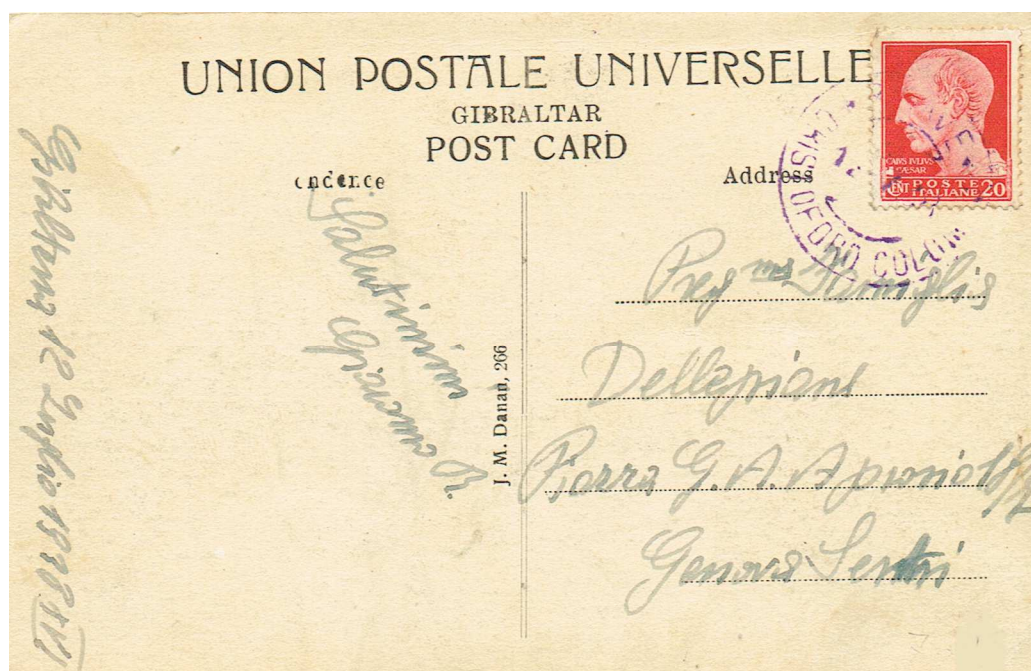 UNION POSTALE UNIVERSELLE
GIBRALTAR
POST CARD
ndence
Address
CAIVS IVLIVS
CAESAR
CENT POSTE
ITALIANE 20
12
COLOM
Gibilterra 12 Luglio 1938 XVI
Salutissimi
J. M. Danan, 266
Preg ma Famiglia
Dellepiane
Piazza G. A.
Genova Sestri